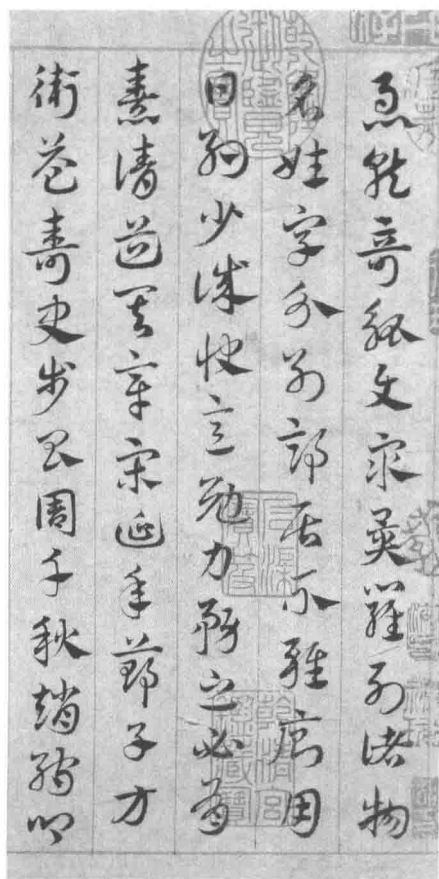 急就奇觚與衆異羅列諸物
名姓字分別部居不雜廁用
日約少誠快意勉力務之必有
憙請道其章宋延年鄭子方
衛益壽史步昌周千秋趙孺卿